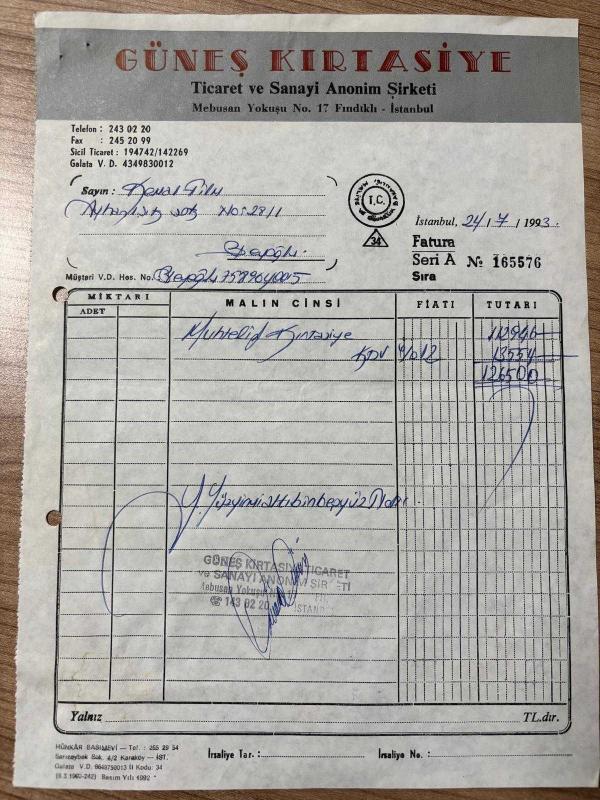 GÜNEŞ KIRTASİYE
Ticaret ve Sanayi Anonim Şirketi
Mebusan Yokuşu No. 17 Fındıklı - İstanbul
Telefon : 243 02 20
Fax : 245 20 99
Sicil Ticaret : 194742/142269
Galata V. D. 4349830012
Sayın : Kemal Film
No: 28/1
Beyoğlu.
T.C.
34
İstanbul, 24/7/1993.
Fatura
Seri A № 165576
Sıra
Müşteri V.D. Hes. No. Beyoğlu
MİKTARI MALIN CİNSİ FİATI TUTARI
ADET
Muhtelif Kırtasiye 112946
KDV %12 13554
126500
Y. Yüzyirmialtıbinbeşyüz
GÜNEŞ KIRTASİYE TİCARET
ve SANAYİ ANONİM ŞİR Tİ
Mebusan Yokuşu
☎ 143 02 20 İSTAN
Yalnız TL.dır.
HÜNKÂR BASIMEVİ — Tel. : 255 29 54
4/2 Karaköy — İST.
Galata V.D. 6649758013 İl Kodu: 34
Basım Yılı 1992
İrsaliye Tar. : İrsaliye No. :